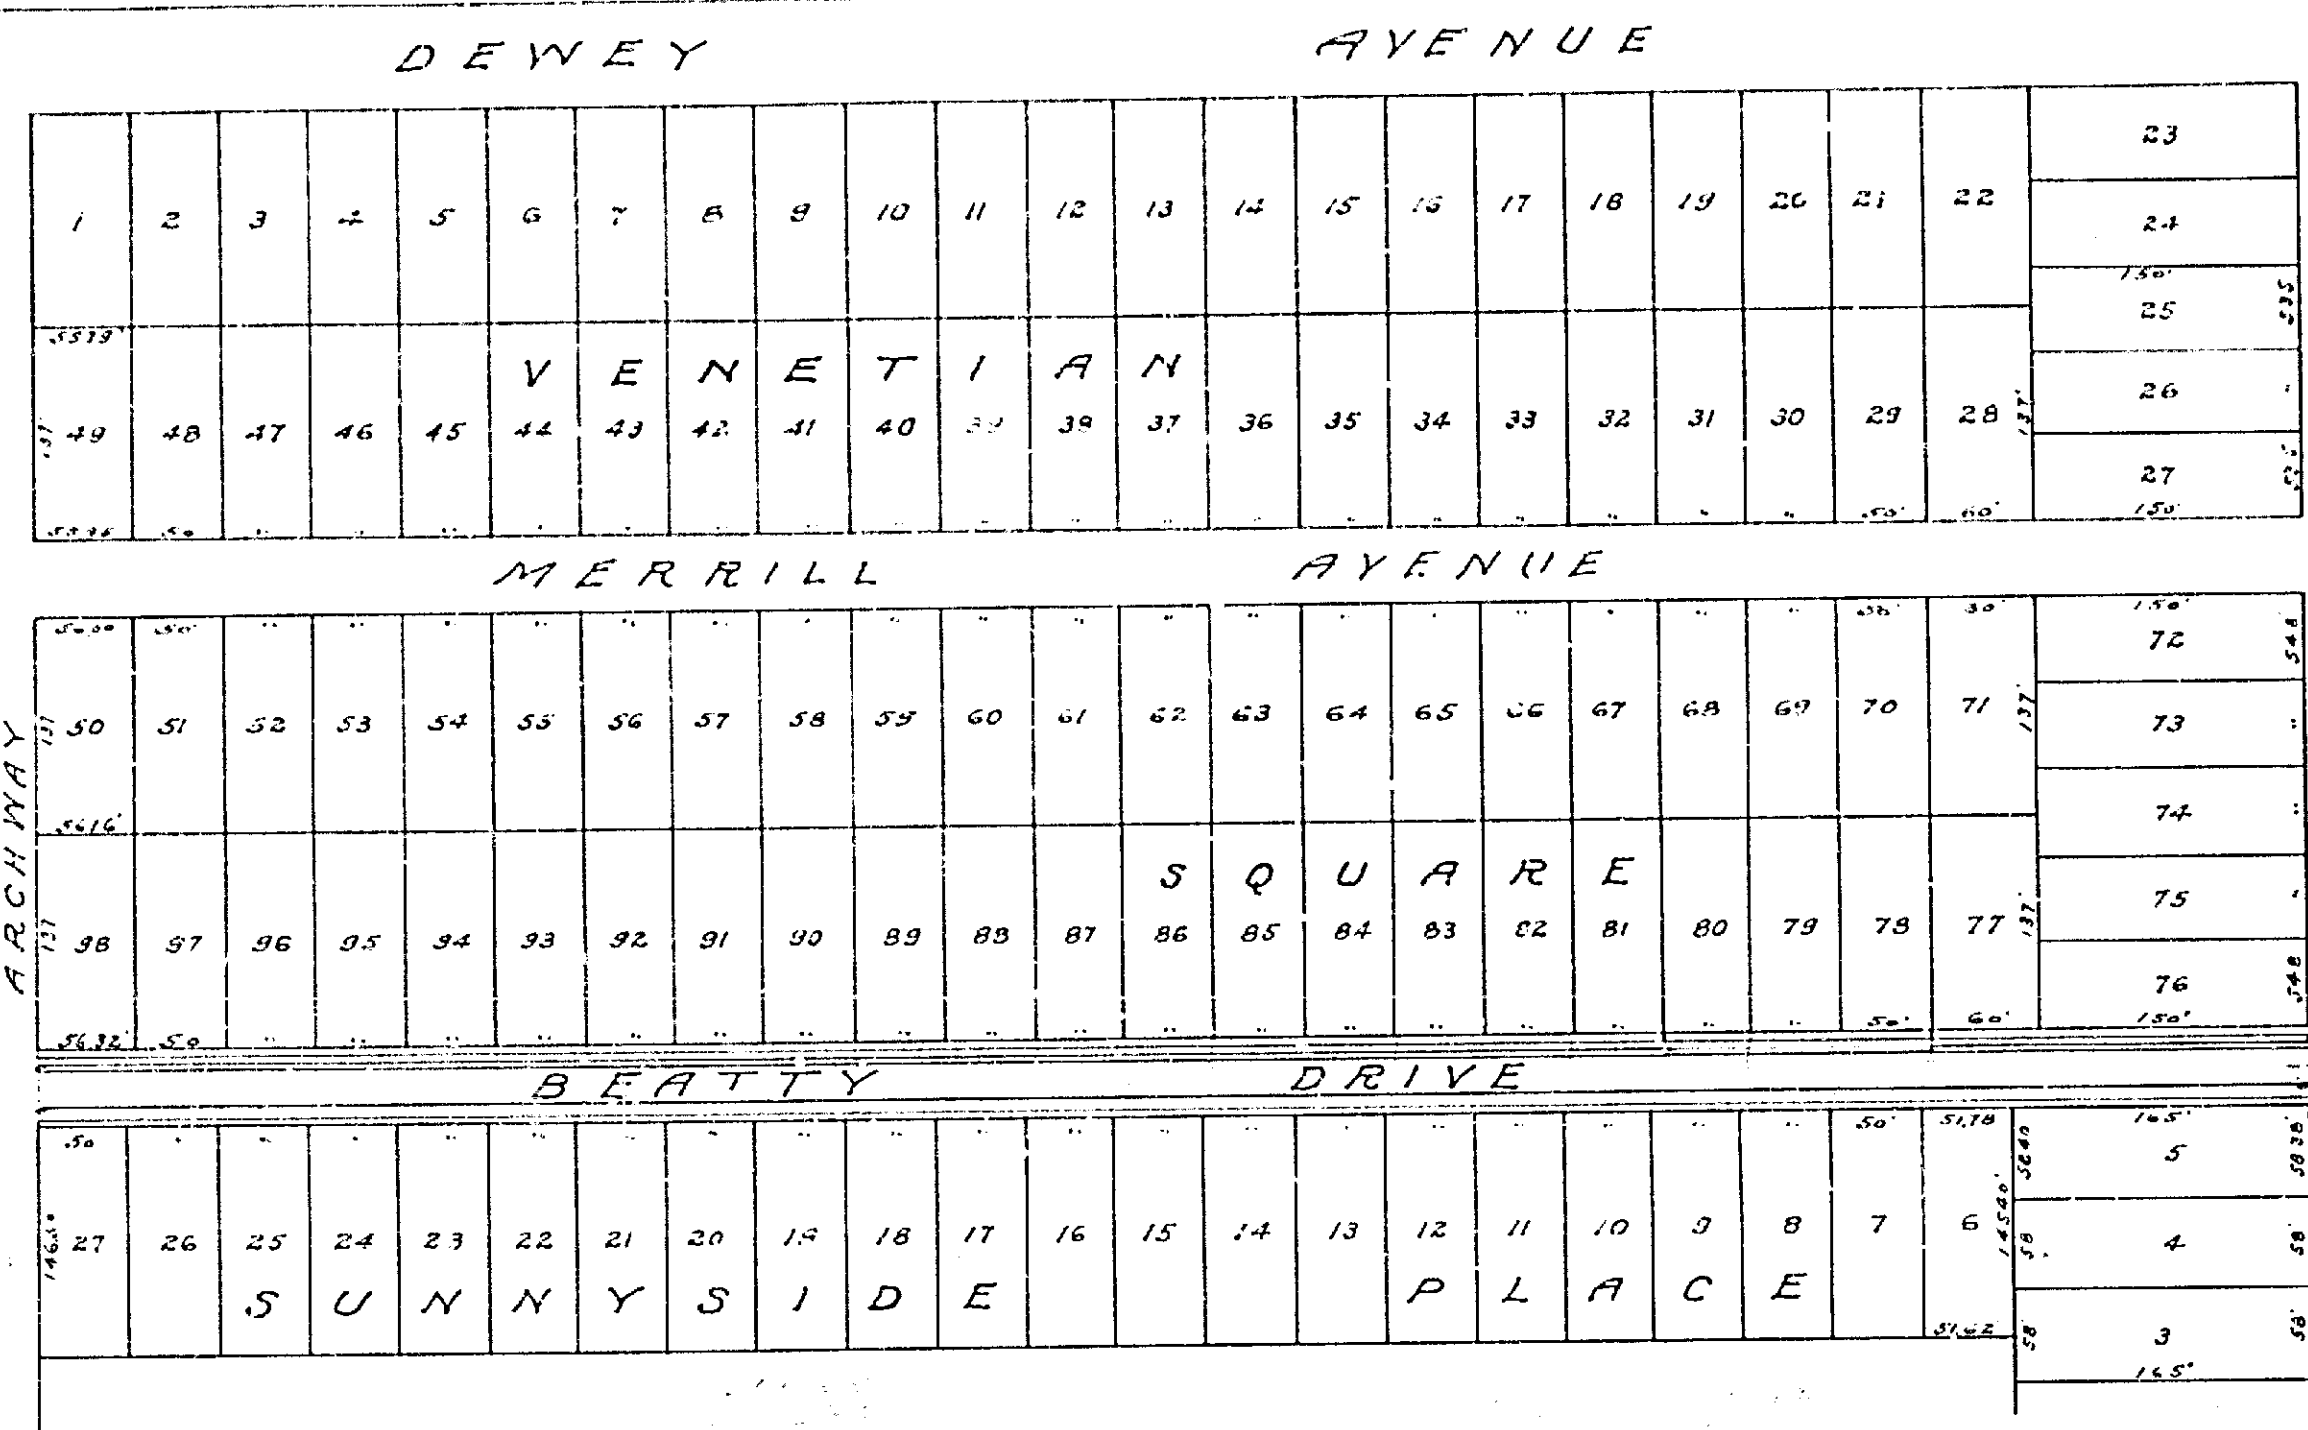 DEWEY AVENUE
1 2 3 4 5 6 7 8 9 10 11 12 13 14 15 16 17 18 19 20 21 22
23
24
150'
25
26
27
150'
VENETIAN
137' 49 48 47 46 45 44 43 42 41 40 39 38 37 36 35 34 33 32 31 30 29 28 137'
50 " " " " " " " " " " " " " " " " " " " 50' 60'
MERRILL AVENUE
50' " " " " " " " " " " " " " " " " " " 50'
150'
72 548
73 "
74 "
75 "
76 548
150'
ARCHWAY
137 50 51 52 53 54 55 56 57 58 59 60 61 62 63 64 65 66 67 68 69 70 71 137'
56.16'
SQUARE
137 98 97 96 95 94 93 92 91 90 89 88 87 86 85 84 83 82 81 80 79 78 77 137'
56.32' 50 " " " " " " " " " " " " " " " " " " 50' 60'
BEATTY DRIVE
50 " " " " " " " " " " " " " " " " " " " 50' 51.78
165'
58.40 5 58.38'
58' 4 58'
58' 3 58'
165'
27 26 25 24 23 22 21 20 19 18 17 16 15 14 13 12 11 10 9 8 7 6 145.40'
SUNNYSIDE PLACE
51.62'